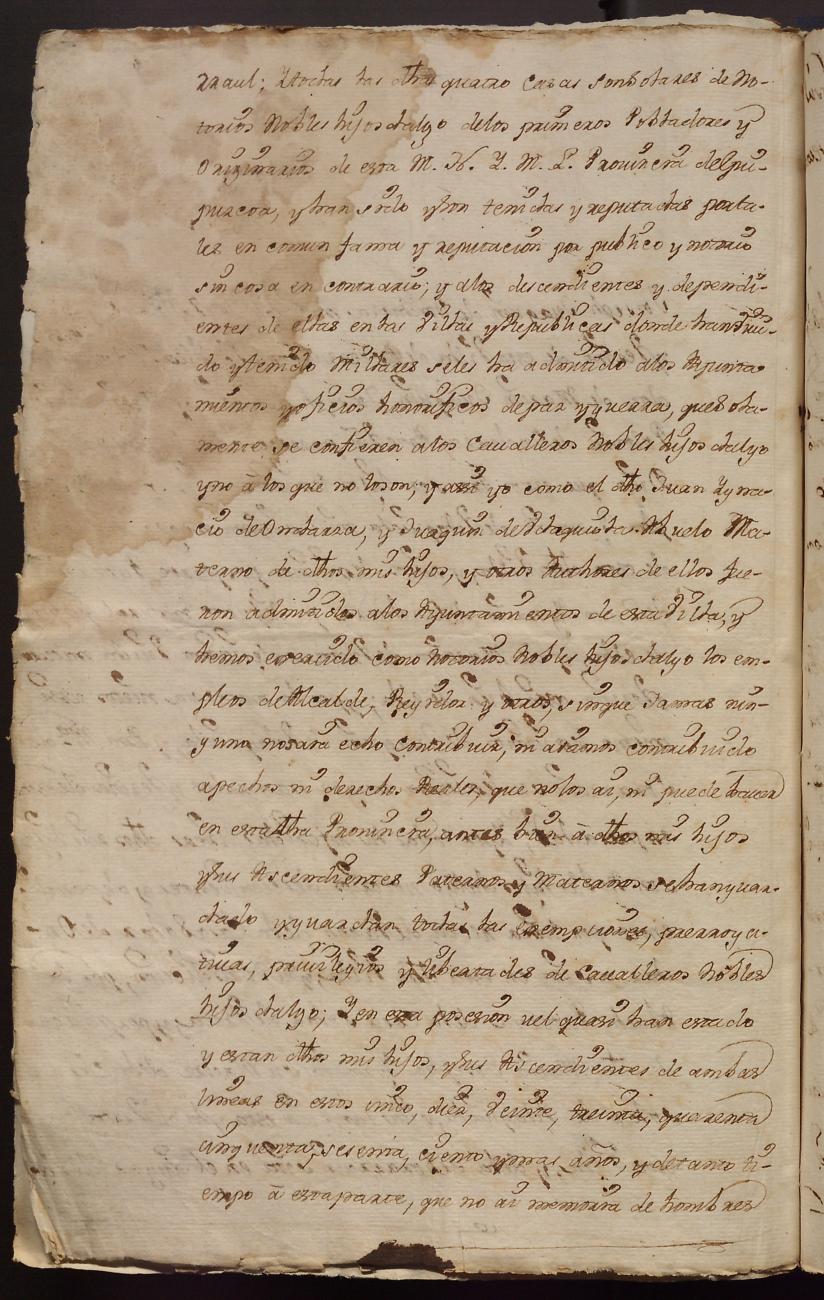 rraul; Y todas las dhas quatro Casas son solares de No-
torios Nobles hijos dalgo de los primeros Pobladores y
Originarios de esta M. N. Y. M. L. Provincia de Gui-
puzcoa, y han sido y son tenidas y reputadas por ta-
les en comun fama y reputacion por publico y notorio
sin cosa en contrario; y a los descendientes y dependi-
entes de ellas en las Villas y Republicas donde han
do y tenido Millares se les ha admitido a los Ayunta
mientos y oficios honorificos de paz y guerra, que sola-
mente se confieren a los Cavalleros Nobles hijos dalgo
y no à los que no lo son; y assi yo como el dho Juan Ygna-
cio de , y Juaquin de Abuelo Ma-
terno de dhos mis hijos, y otros Authores de ellos fue-
ron admitidos a los Ayuntamientos de esta Villa, y
hemos exercido como Notorios Nobles hijos dalgo los em-
pleos de Alcalde, Regidor y otros, sin que Jamas nin-
guno nos aia echo Contribuir, ni aiamos contribuido
a pechos ni derechos Reales, que no los ai, ni puede haver
en esta dha Provincia, antes bien à dhos mis hijos
y sus Ascendientes Paternos y Maternos se han guar-
dado y guardan todas las exempciones, prerroga-
tivas, privilegios y libertades de Cavalleros Nobles
hijos dalgo; Y en esa posesion vel quasi han estado
y estan dhos mis hijos, y sus Ascendientes de ambas
lineas en estos cinco, diez, veinte, treinta, quarenta
cinquenta, sesenta, ciento y mas años, y de tanto ti-
empo à esta parte, que no ai memoria de hombres